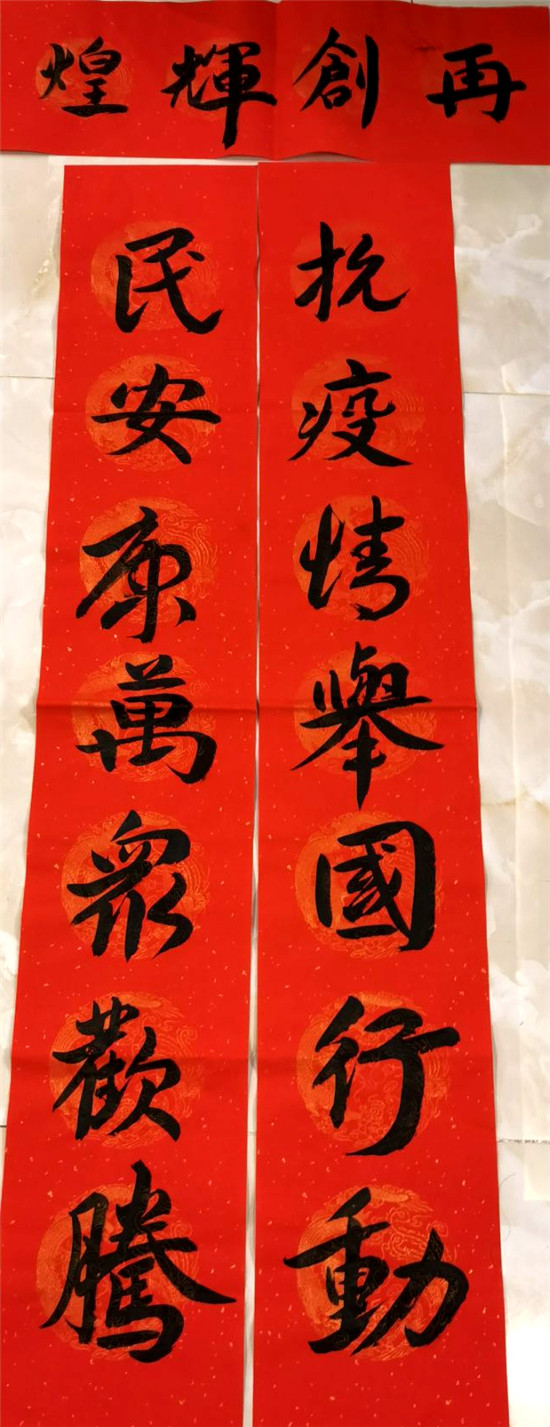 再創輝煌
抗疫情舉國行動
民安康萬眾歡騰